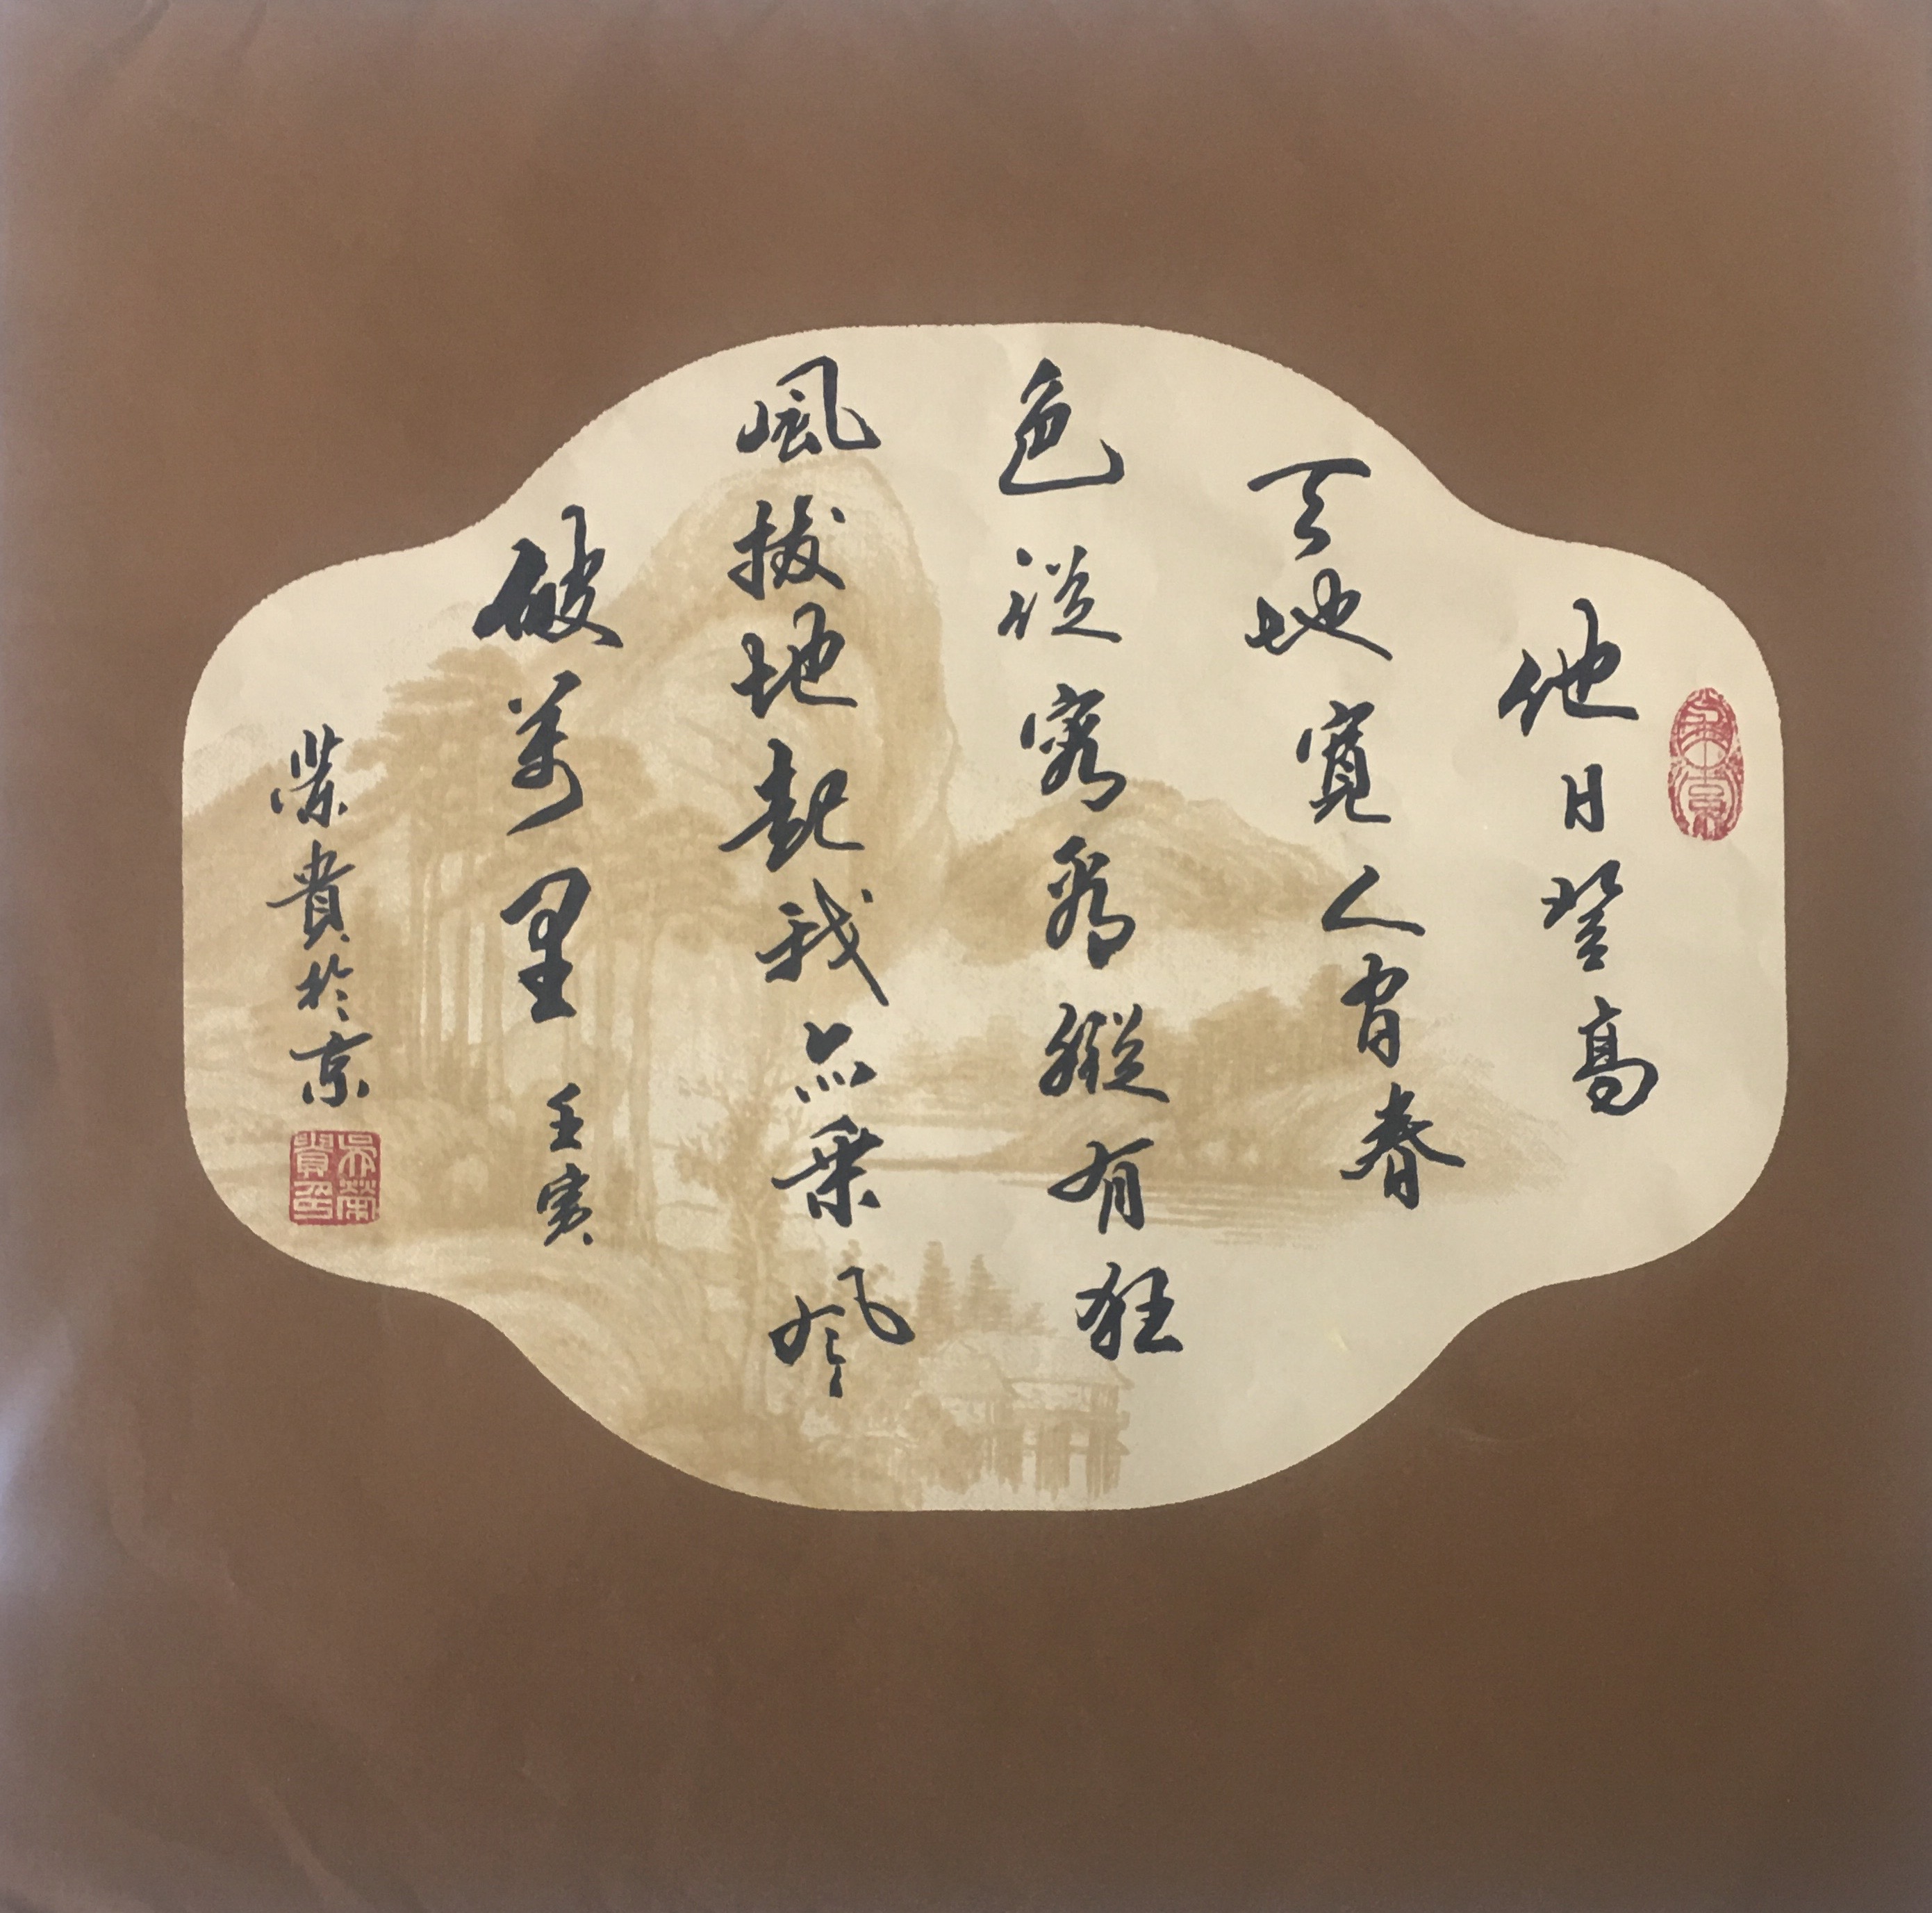 他日登高
天地寬人有春
色從容爲縱有狂
風拔地起我亦乘風
破萬里 壬寅
榮貴於京
吳榮貴印